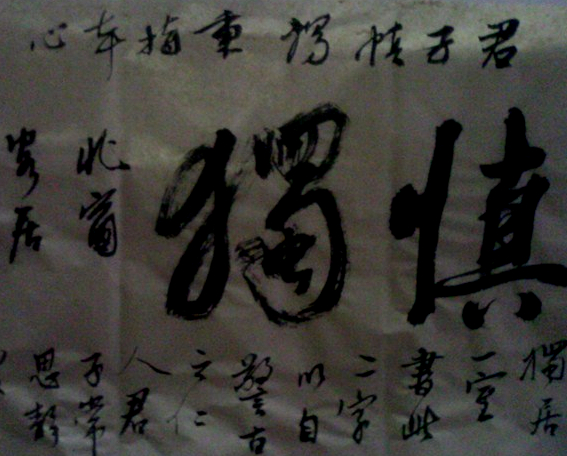 君子慎獨重指本心
慎獨
北窗
客居
獨居
一室
書此
二字
以自
警古
云仁
人君
子常
思